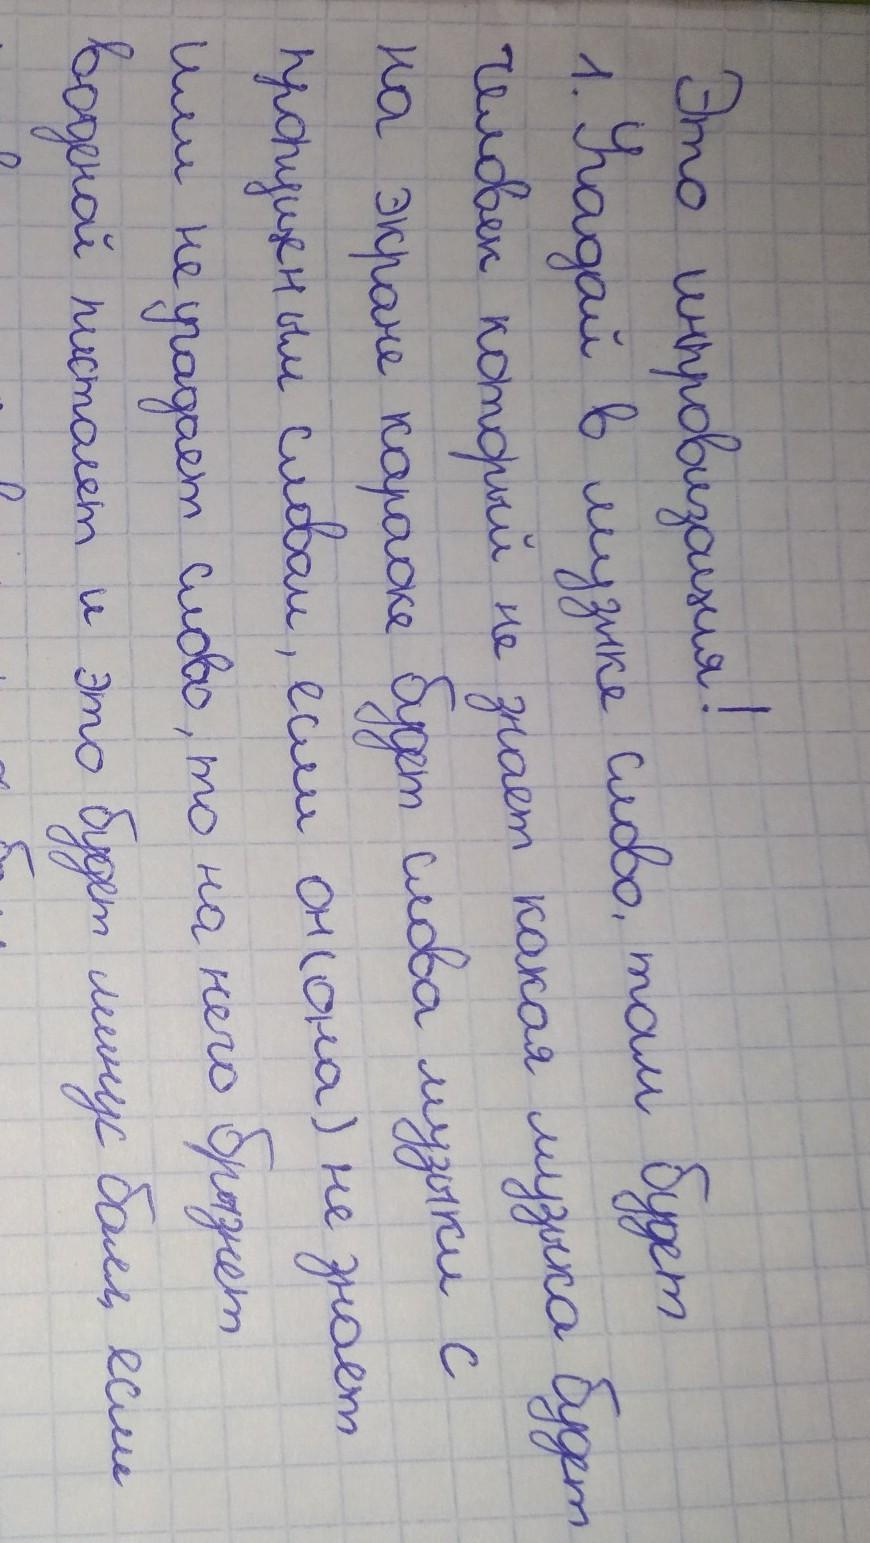 Это инпровизация!
1. Угадай в музыке слово, там будет
человек который не знает какая музыка будет
на экране караоке будет слова музыки с
пропущеным словам, если он(она) не знает
или не угадает слово, то на него брызнет
водяной пистолет и это будет минус балл, если